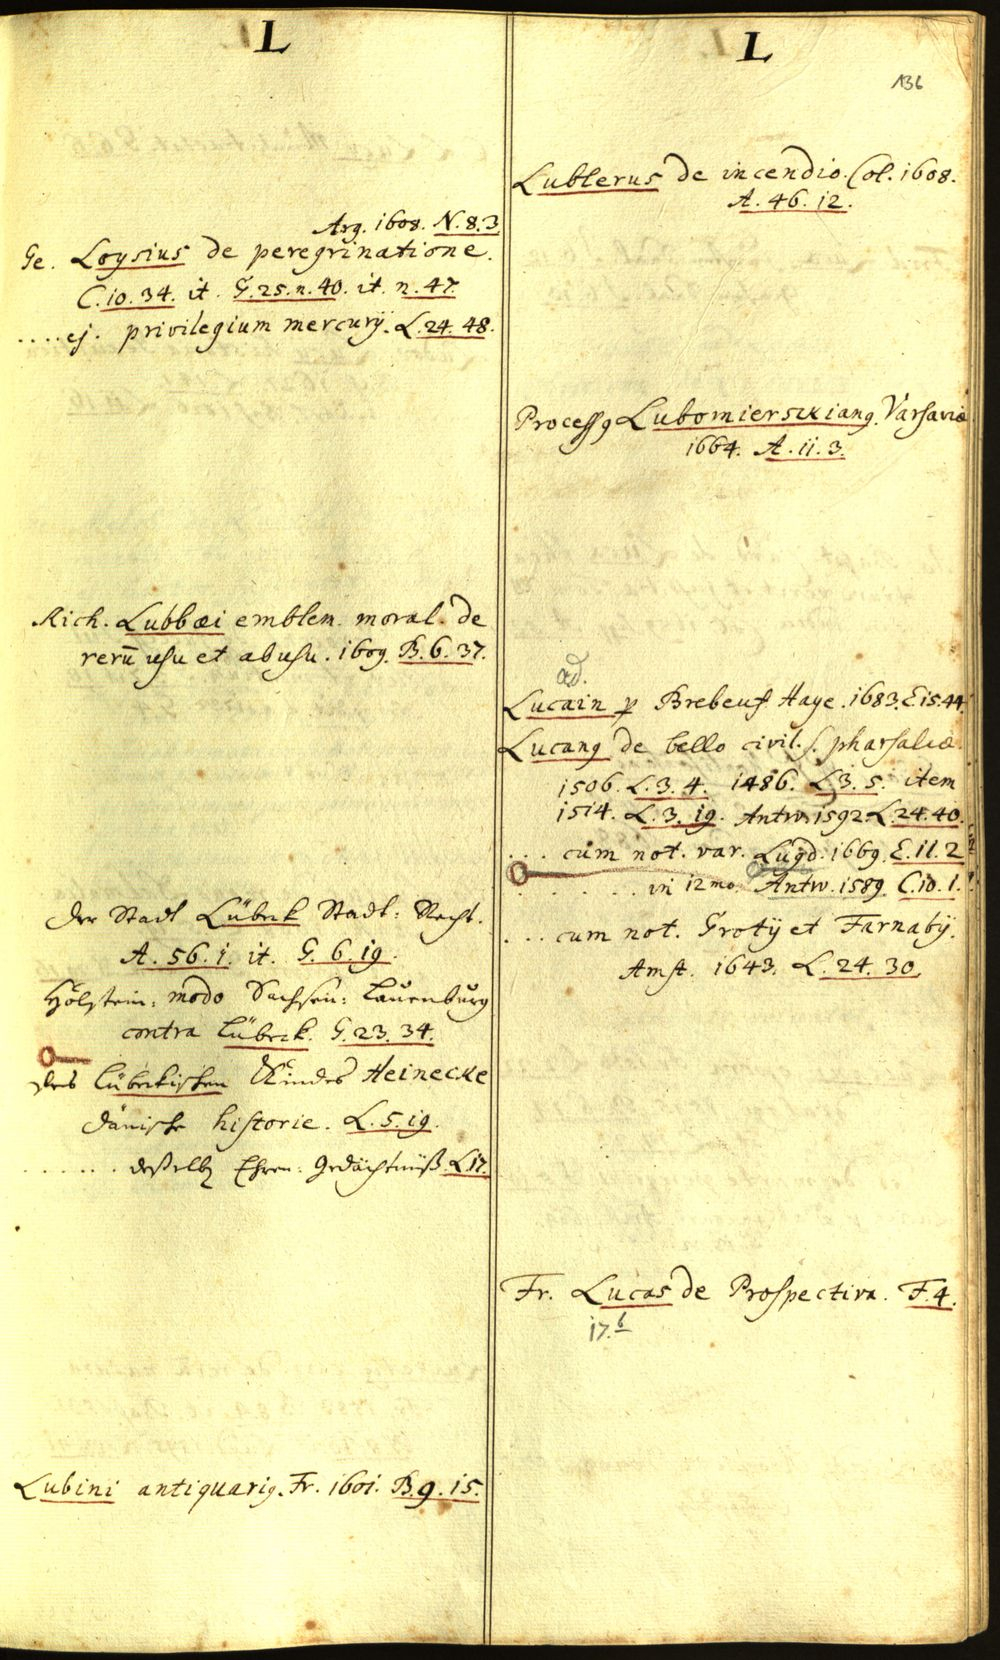 L
Arg. 1608. N. 8. 3
Ge. Loysius de peregrinatione.
C. 10. 34. it. G. 25. n. 40. it. n. 47.
.... ej. privilegium mercurÿ. L. 24. 48.
Rich. Lubbæi emblem. moral. de
rerū usu et abusu. 1609. B. 6. 37.
Der Stadt Lübek Stadt: Recht.
A. 56. 1. it. G. 6. 19.
Holstein: modo Sachsen: Lauenburg
contra Lübek. G. 23. 34.
des Lübekischen Kindes Heinecke
dänische historie. L. 5. 19.
...... deßelb Ehren: Gedächtnüß. L 17.
Lubini antiquariq. Fr. 1601. B. 9. 15.
L
136
Lublerus de incendio. Col. 1608.
A. 46. 12.
Process9 Lubomiersckian9. Varsaviæ
1664. A. 11. 3.
ad.
Lucain p Brebeuf. Haye. 1683. E 15. 44.
Lucan9 de bello civil. s. pharsaliæ.
1506. L. 3. 4. 1486. L 3. 5. item
1514. L. 3. 19. Antw. 1592. L. 24. 40.
... cum not. var. Lugd. 1669. E. 11. 2
...... in 12mo. Antw. 1589. C. 10. 1.
... cum not. Grotÿ et Farnabÿ.
Amst. 1643. L. 24. 30.
Fr. Lucas de Prospectiva. F. 4.
17. b